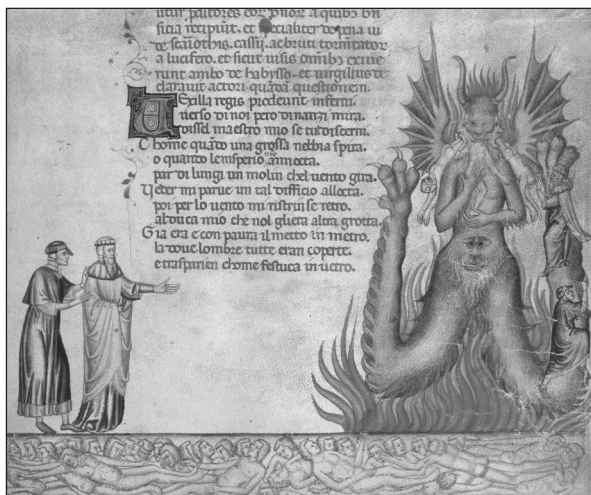 ficia recipiūt. et specialiter de pena iu
de scariothis. cassii. ac bruti tormētator
a lucifero. et sicut uisis omībꝫ exiue
runt ambo de habysso. et uirgilius de
clarauit actori quādā questionem.
Vexilla regis prodeunt inferni
uerso di noi pero dinanzi mira.
dissel maestro mio se tu discerni.
Chome quādo una grossa nebbia spira.
o quanto lemisperio nr̄o annocta.
par di lungi un molin chel uento gira.
Ueder mi parue un tal difficio allocta.
poi per lo uento mi ristrinse retro.
al duca mio che nol gliera altra grotta.
Gia era e con paura il metto in metro.
la doue lombre tutte eran coperte.
e trasparien chome festuca in uetro.